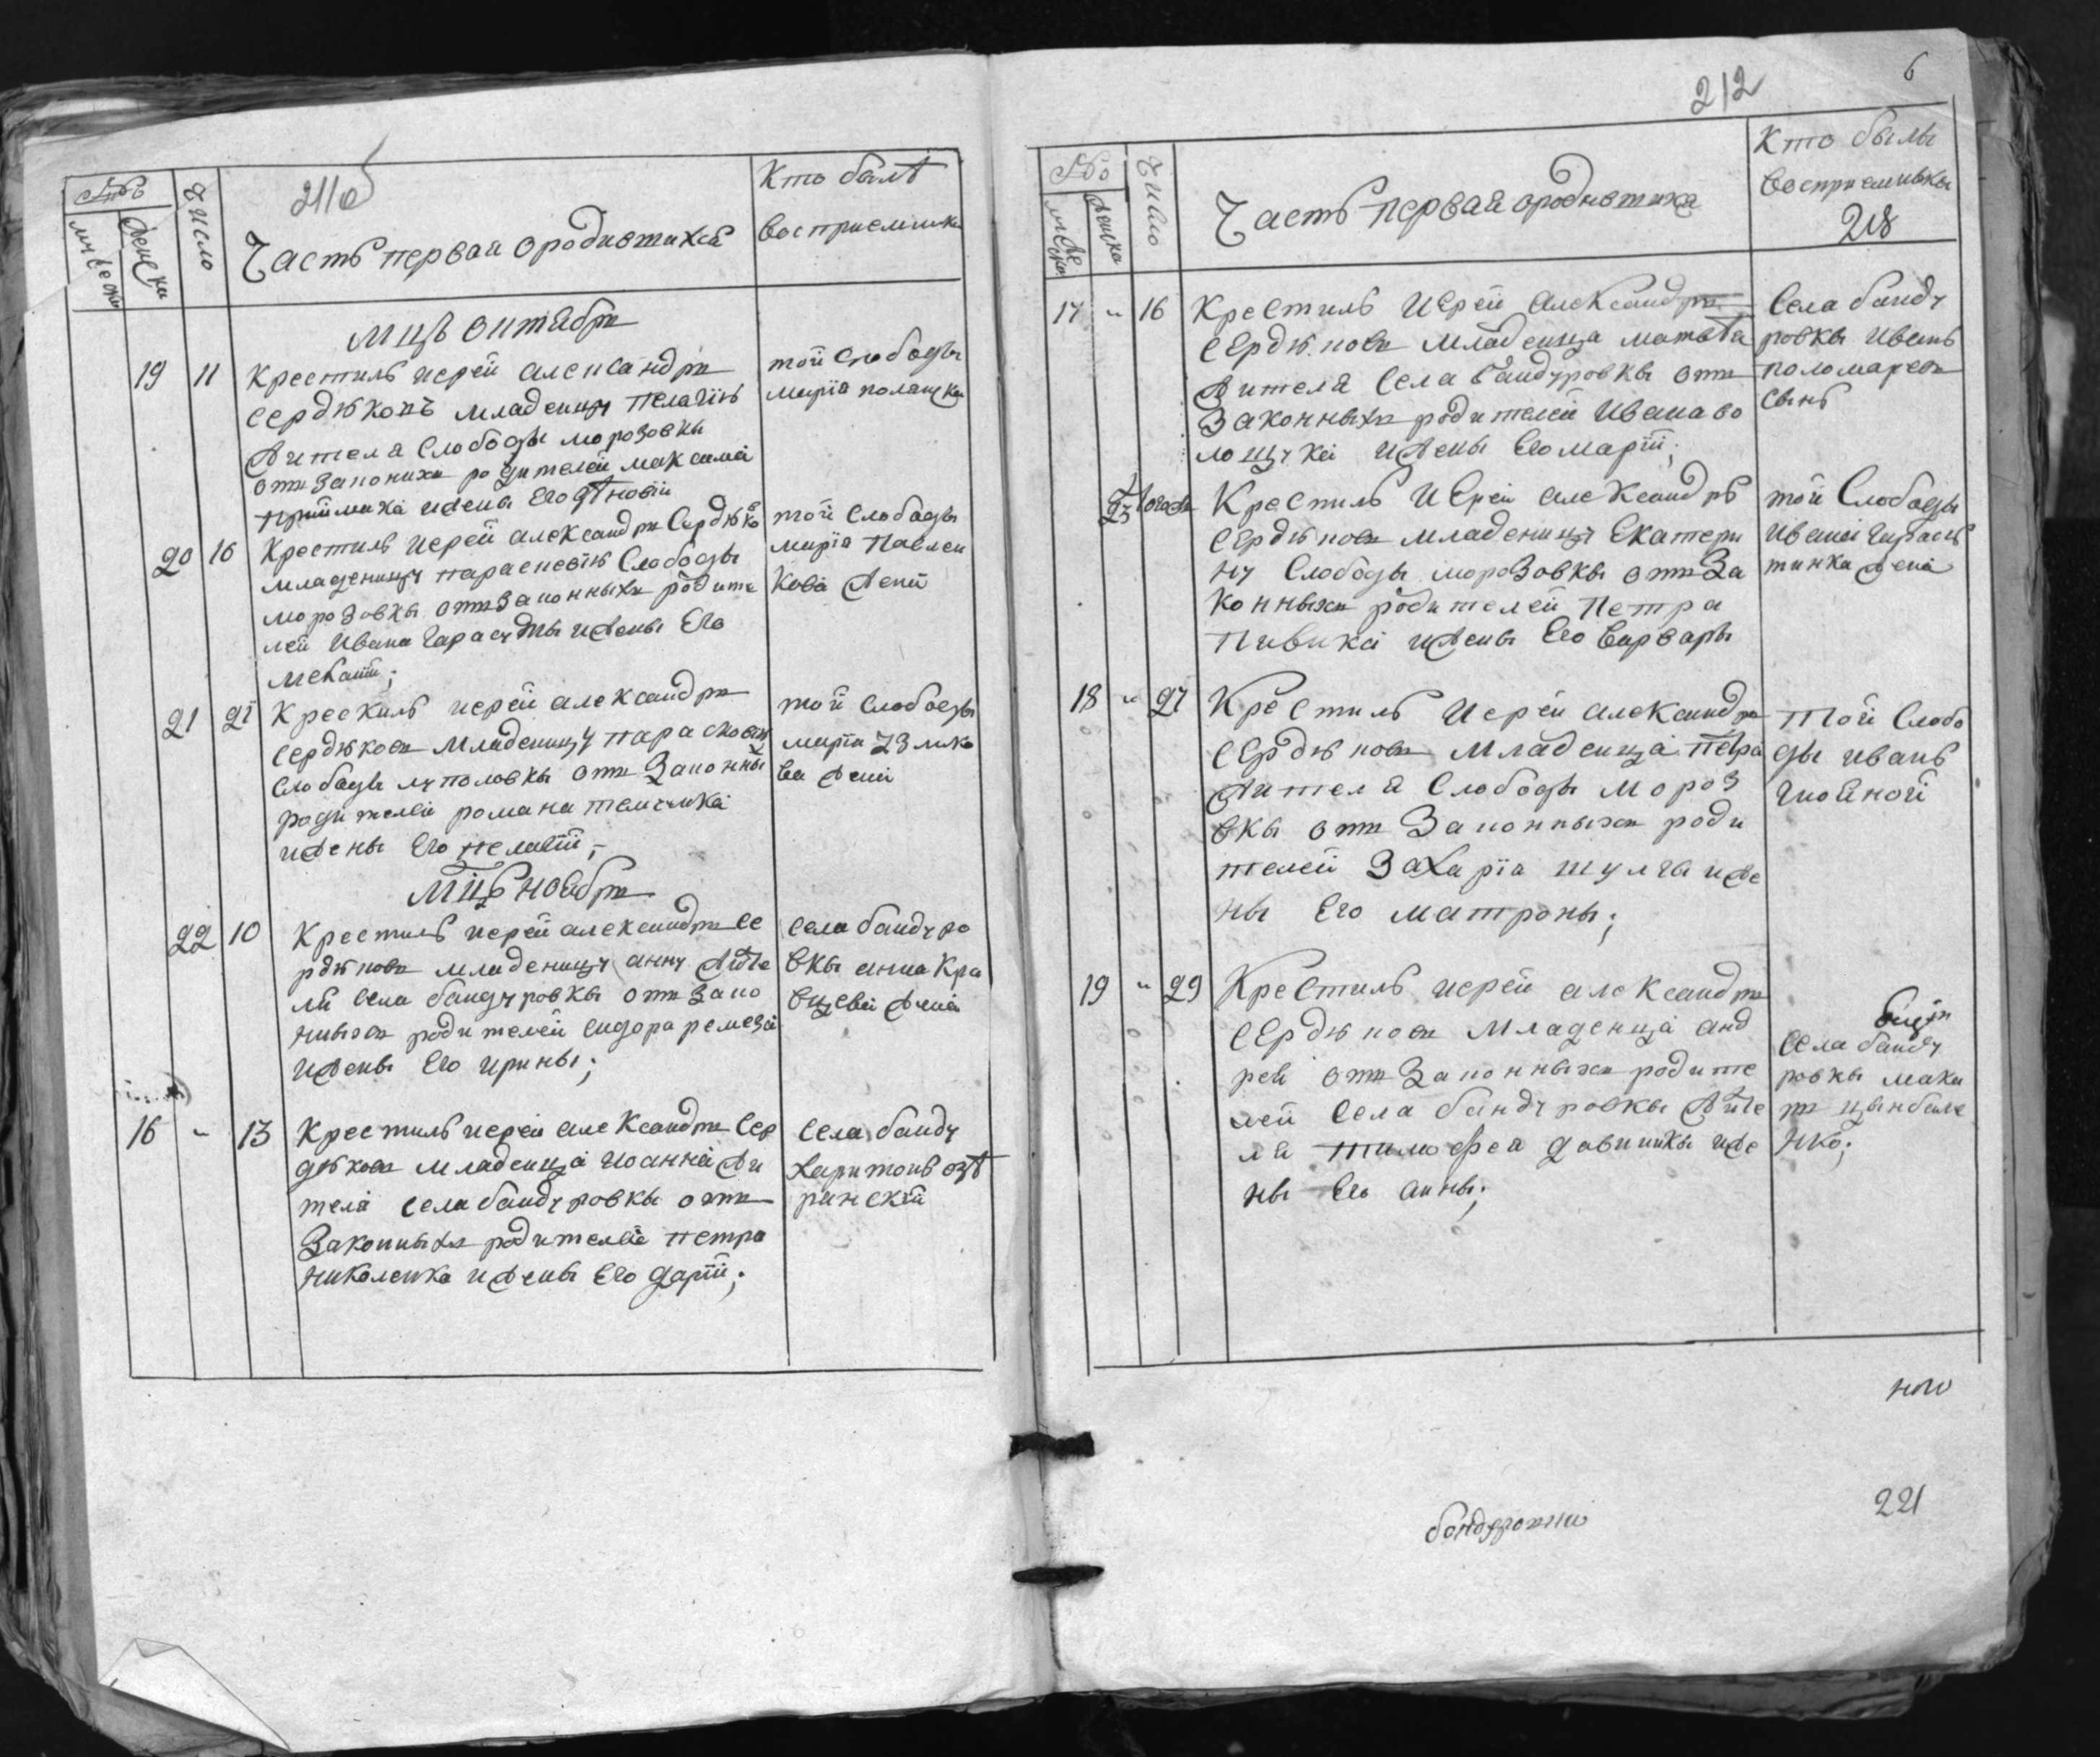 211об
Число
Часть первая ородившихся
Кто былъ
восприемники
мцъ октября
19 11 Крестилъ иерей александръ
Сердюковъ младеницу пелагію
жителя Слободы морозовки
отъ законихъ родителей максима
приймака и жены Его
той слободы
марія
20 16 Крестилъ иерей александръ Сердюко
младеницу параскевію Слободы
морозовки отъ законныхъ родите
лей Ивана Гарасуты и жены Его
меланіи;
той слободы
марія Павлен
кова жена
21 21 Крестилъ иерей александръ
Сердюковъ младеницу параскови
Слободы луполовки отъ законны
родителей романа
и жены Его пелагіи;
той слободы
марія
ва жена
Мцъ ноября
22 10 Крестилъ иерей александръ Се
рдюковъ младеницу анну жите
ли села бандуровки отъ зако
нныхъ родителей сидора ремеза
и жены Его ирины;
села бандуро
вки анна Кра
вцева жена
16 " 13 Крестилъ иерей александръ Сер
дюковъ младенца иоанна жи
теля села бандуровки отъ
Законныхъ родителей петра
николенка и жены Его даріи;
села банду
Харитонъ
ринский
212
6
Число
женска
Часть первая ородившихся
Кто былы
восприемныки
218
17 " 16 Крестилъ Иерей александръ
Сердюковъ младенца матвѣя
жителя села бандуровкы отъ
Законныхъ родителей Ивана во
лощука и жены Его маріи;
Села банду
ровкы Иванъ
поломаревъ
сынъ
23 Крестилъ Иерей александръ
Сердюковъ младеницу Екатери
ну Слободы морозовкы отъ За
конныхъ родителей Петра
Пивика и жены Его Варвары
той Слободы
Ивана
жена
18 " 27 Крестилъ Иерей александръ
Сердюковъ младенца Петра
жителя Слободы мороз
вкы отъ Законныхъ роди
телей Захарія шулги и же
ны Его матроны;
Той Слобо
ды иванъ
Гнояной
19 " 29 Крестилъ иерей александръ
Сердюковъ младенца анд
рея отъ Законныхъ родите
лей Села бандуровкы жите
ля тимофея довники и же
ны Его анны;
Села банду
ровкы мака
ръ цынбале
нко;
221